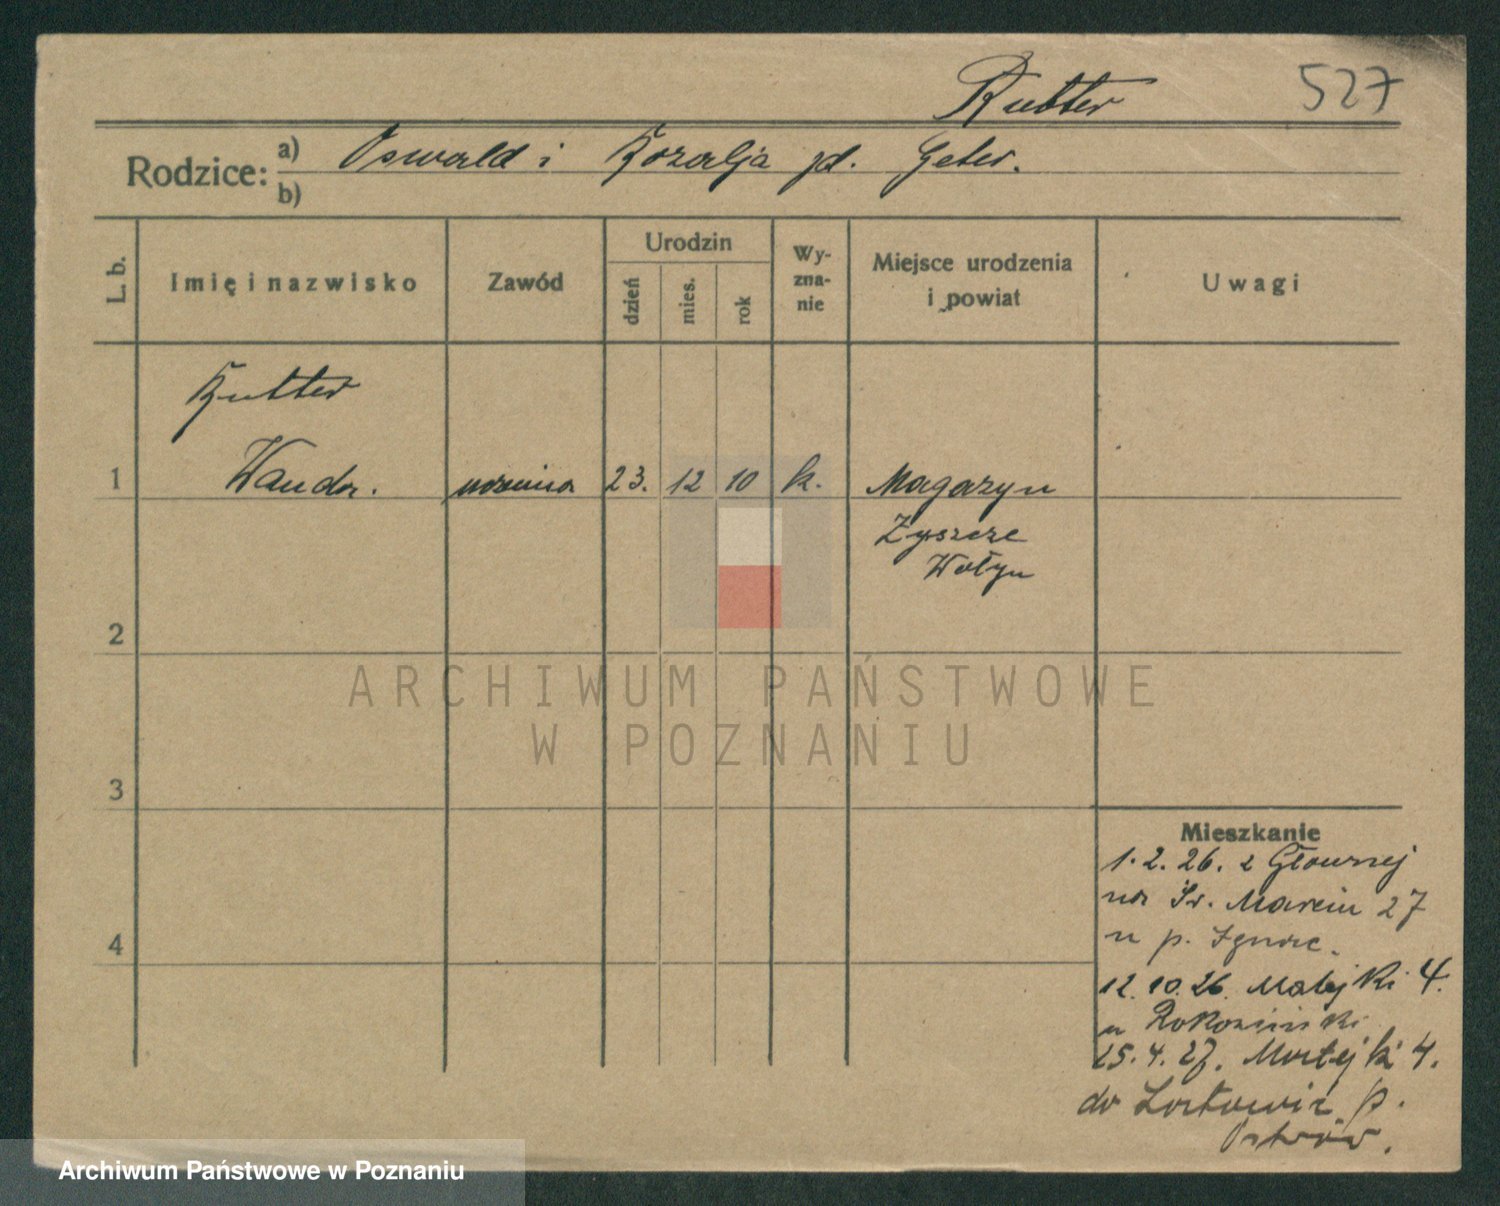 Rutter 527
Rodzice: a) Oswald i Rozalja zd. Geter.
b)
L. b.
Imię i nazwisko
Zawód
Urodzin
dzień
mies.
rok
Wy-
zna-
nie
Miejsce urodzenia
i powiat
Uwagi
Rutter
1 Wanda. uczenica 23. 12 10 k. Magazyn
Zyszcze
Wołyn
2
ARCHIWUM PAŃSTWOWE
W POZNANIU
3
Mieszkanie
1.2.26. z Głównej
na Św. Marcin 27
u p. Ignac.
4
12.10.26. Matejki 4.
u
15.4.27. Matejki 4.
do p.
Ostrów.
Archiwum Państwowe w Poznaniu